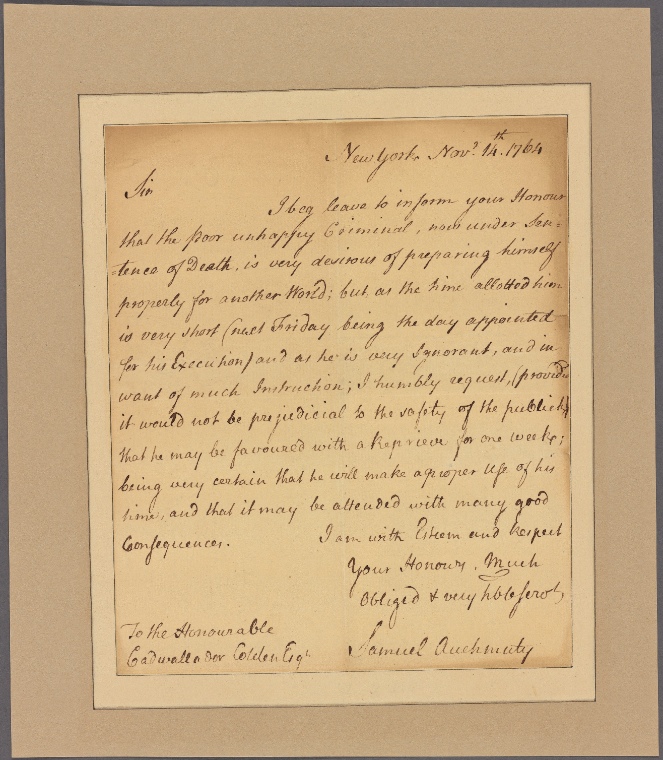 New York Nov.r 14.th 1764
Sir
I beg leave to inform your Honour
that the Poor unhappy Criminal, now under Sen=
=tence of Death, is very desirous of preparing himself
properly for another World; but as the time allotted him
is very short (next Friday being the day appointed
for his Execution) and as he is very Ignorant, and in
want of much Instruction; I humbly request, (provided
it would not be prejudicial to the safety of the publick)
that he may be favoured with a Reprieve for one week;
being very certain that he will make a proper Use of his
time, and that it may be attended with many good
Consequences.
I am with Esteem and Respect
Your Honours, Much
Obliged & very hble serv.t
To the Honourable
Cadwallader Colden Esq.r
Samuel Auchmuty